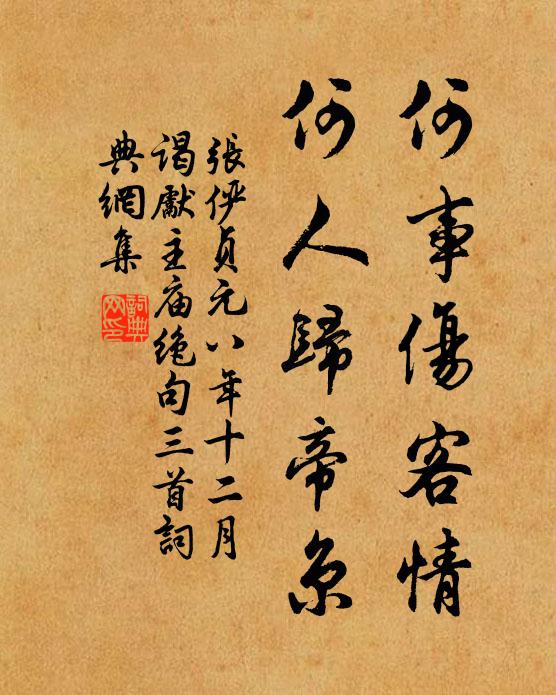 何事傷客情
何人歸帝京
張俨貞元八年十二月
謁獻主庙絶句三首詞
典網集
詞典網印